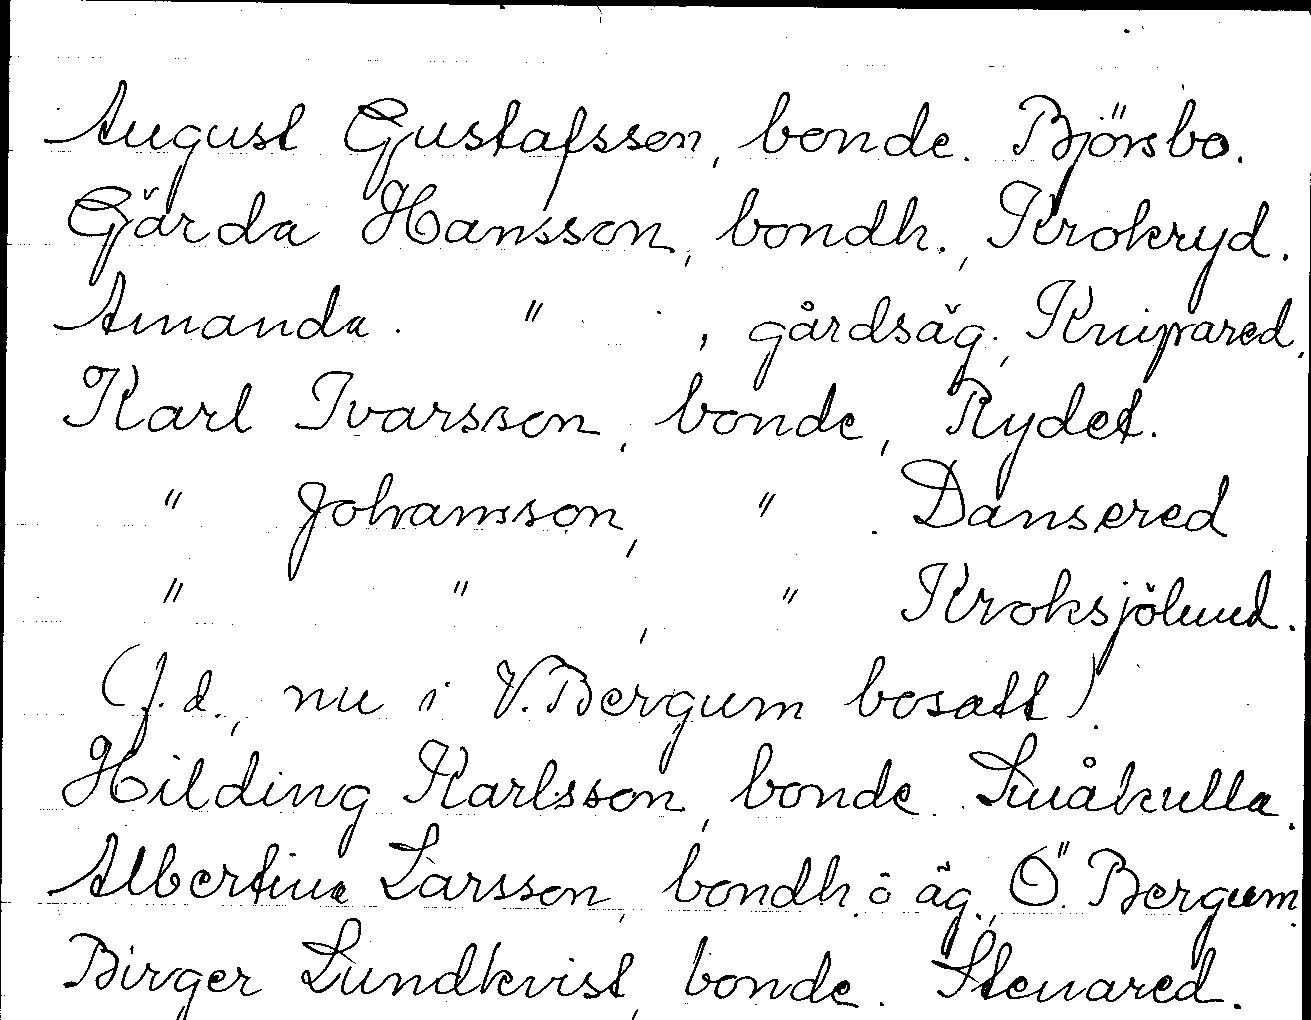 August Gustafsson, bonde. Björsbo.
Gärda Hansson, bondh., Krokryd.
Amanda " , gårdsäg., Knipared.
Karl Ivarsson, bonde, Rydet.
" Johansson, " . Dansered
" " , " Kroksjölund.
(f.d., nu i V. Bergum bosatt).
Hilding Karlsson, bonde. Småkulla.
Albertina Larsson, bondh. o äg., Ö. Bergum.
Birger Lundkvist, bonde. Stenared.